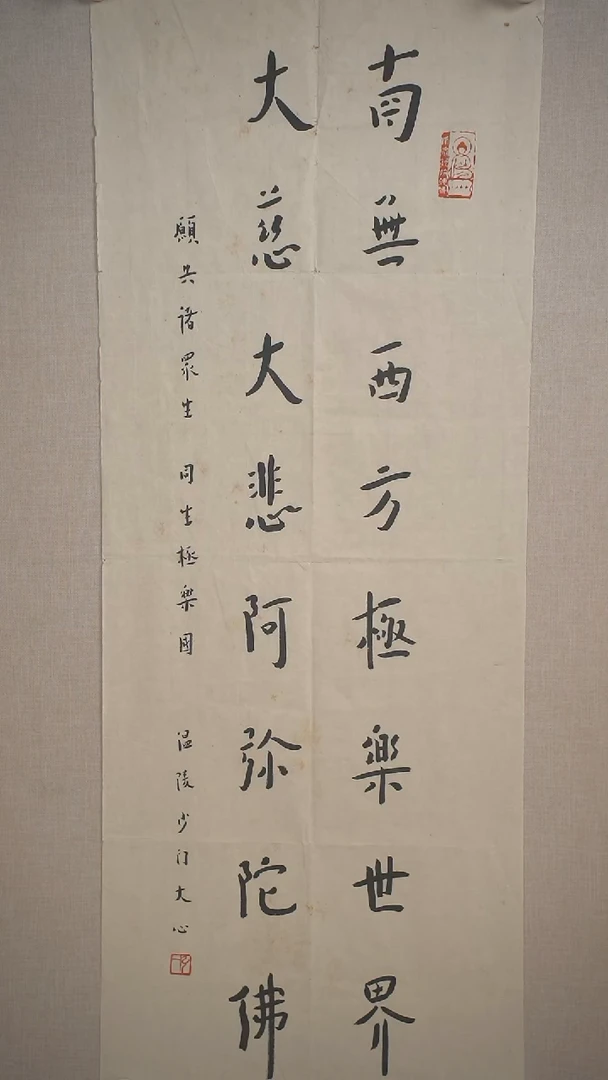 南無西方極樂世界
大慈大悲阿弥陀佛
願共諸眾生 同生極樂國 温陵沙门大心